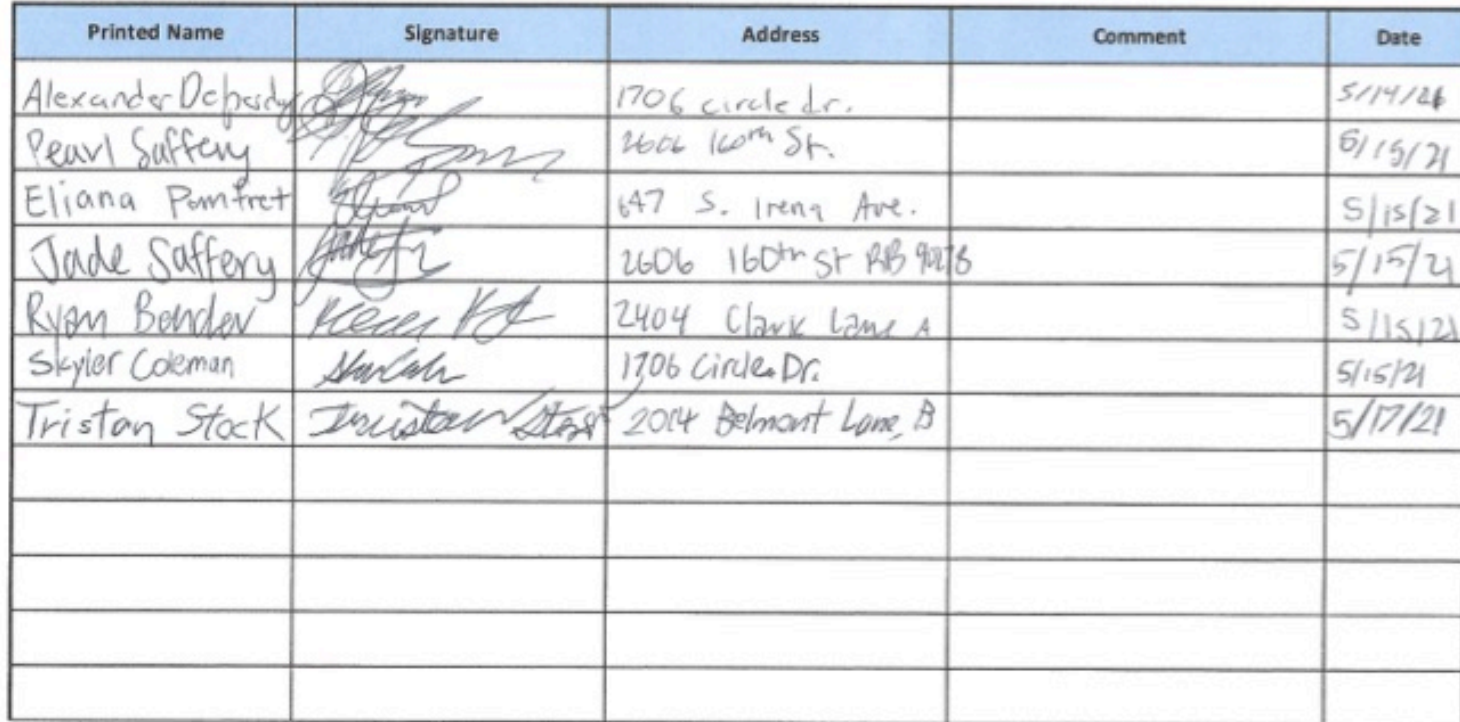 Printed Name Signature Address Comment Date
Alexander 1706 circle dr. 5/14/21
Pearl Saffery 2606 160th St. 5/15/21
Eliana Pomfret 647 S. Irena Ave. 5/15/21
Jade Saffery 2606 160th St RB 90278 5/15/21
Ryan Bender 2404 Clark Lane A 5/15/21
Skyler Coleman 1706 Circle Dr. 5/15/21
Tristan Stock Tristan Stock 2014 Belmont Lane, B 5/17/21